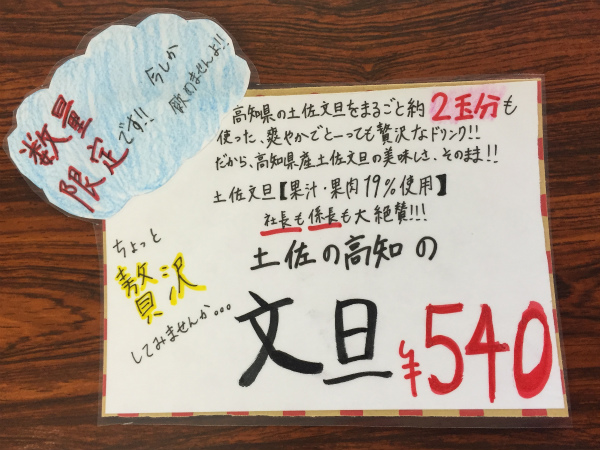 数量
限定です!!
今しか
飲めませんよ!!
高知県の土佐文旦をまるごと約2玉分も
使った、爽やかでとーっても贅沢なドリンク!!
だから、高知県産土佐文旦の美味しさ、そのまま!!
土佐文旦【果汁・果肉19%使用】
社長も係長も大絶賛!!!
ちょっと
贅沢
してみませんか...
土佐の高知の
文旦
¥540